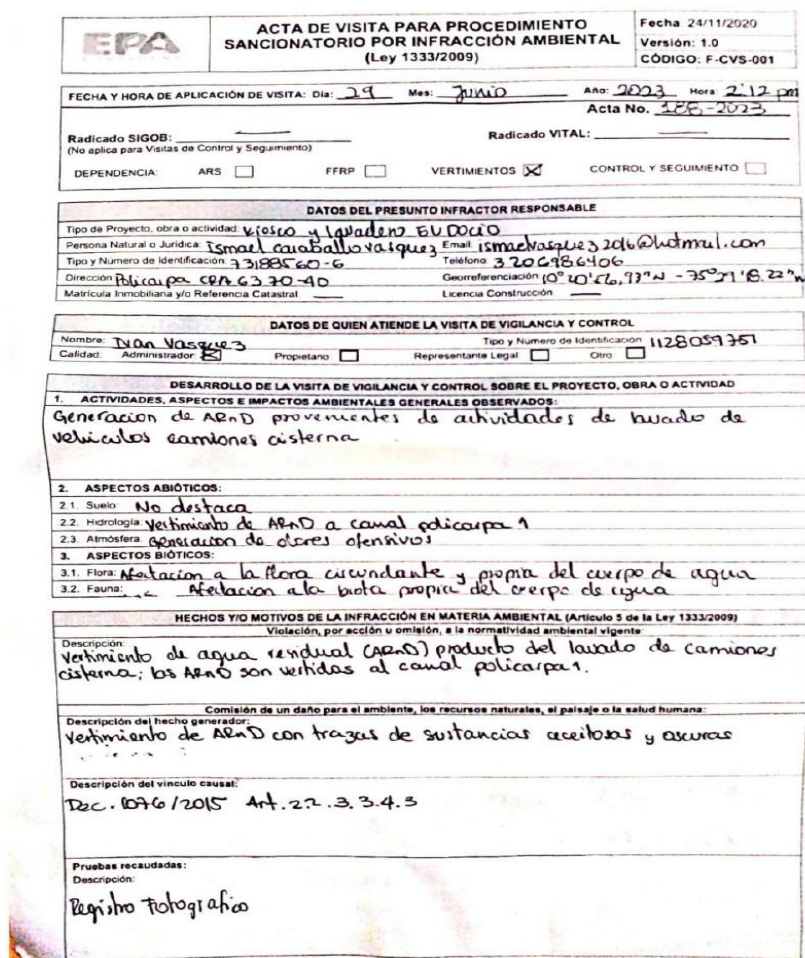 EPA
ACTA DE VISITA PARA PROCEDIMIENTO
SANCIONATORIO POR INFRACCIÓN AMBIENTAL
(Ley 1333/2009)
Fecha: 24/11/2020
Versión: 1.0
CÓDIGO: F-CVS-001
FECHA Y HORA DE APLICACIÓN DE VISITA: Día: 29 Mes: Junio Año: 2023 Hora: 2:12 pm
Acta No. 188-2023
Radicado SIGOB: —
Radicado VITAL: —
(No aplica para Visitas de Control y Seguimiento)
DEPENDENCIA: ARS FFRP VERTIMIENTOS X CONTROL Y SEGUIMIENTO
DATOS DEL PRESUNTO INFRACTOR RESPONSABLE
Tipo de Proyecto, obra o actividad: Kiosco y lavadero EUDOCIO
Persona Natural o Jurídica: Ismael caraballo vasquez Email: ismaelvasquez2016@hotmail.com
Tipo y Número de Identificación: 73188560-6 Teléfono: 3206986406
Dirección: Policarpa CRA 63 70-40 Georreferenciación:
Matrícula Inmobiliaria y/o Referencia Catastral: — Licencia Construcción: —
DATOS DE QUIEN ATIENDE LA VISITA DE VIGILANCIA Y CONTROL
Nombre: Ivan Vasquez Tipo y Número de Identificación: 1128059751
Calidad: Administrador X Propietario Representante Legal Otro
DESARROLLO DE LA VISITA DE VIGILANCIA Y CONTROL SOBRE EL PROYECTO, OBRA O ACTIVIDAD
1. ACTIVIDADES, ASPECTOS E IMPACTOS AMBIENTALES GENERALES OBSERVADOS:
Generacion de ARnD provenientes de actividades de lavado de
vehiculos camiones cisterna
2. ASPECTOS ABIÓTICOS:
2.1. Suelo: No destaca
2.2. Hidrología: Vertimiento de ARnD a canal policarpa 1
2.3. Atmósfera: Generacion de olores ofensivos
3. ASPECTOS BIÓTICOS:
3.1. Flora: Afectacion a la flora circundante y propia del cuerpo de agua
3.2. Fauna: Afectacion a la biota propia del cuerpo de agua
HECHOS Y/O MOTIVOS DE LA INFRACCIÓN EN MATERIA AMBIENTAL (Artículo 5 de la Ley 1333/2009)
Violación, por acción u omisión, a la normatividad ambiental vigente:
Descripción:
Vertimiento de agua residual (ARnD) producto del lavado de camiones
cisterna; las ARnD son vertidas al canal policarpa 1.
Comisión de un daño para el ambiente, los recursos naturales, el paisaje o la salud humana:
Descripción del hecho generador:
Vertimiento de ARnD con trazas de sustancias aceitosas y oscuras
Descripción del vínculo causal:
Dec. 1076/2015 Art. 2.2.3.3.4.3
Pruebas recaudadas:
Descripción:
Registro Fotografico